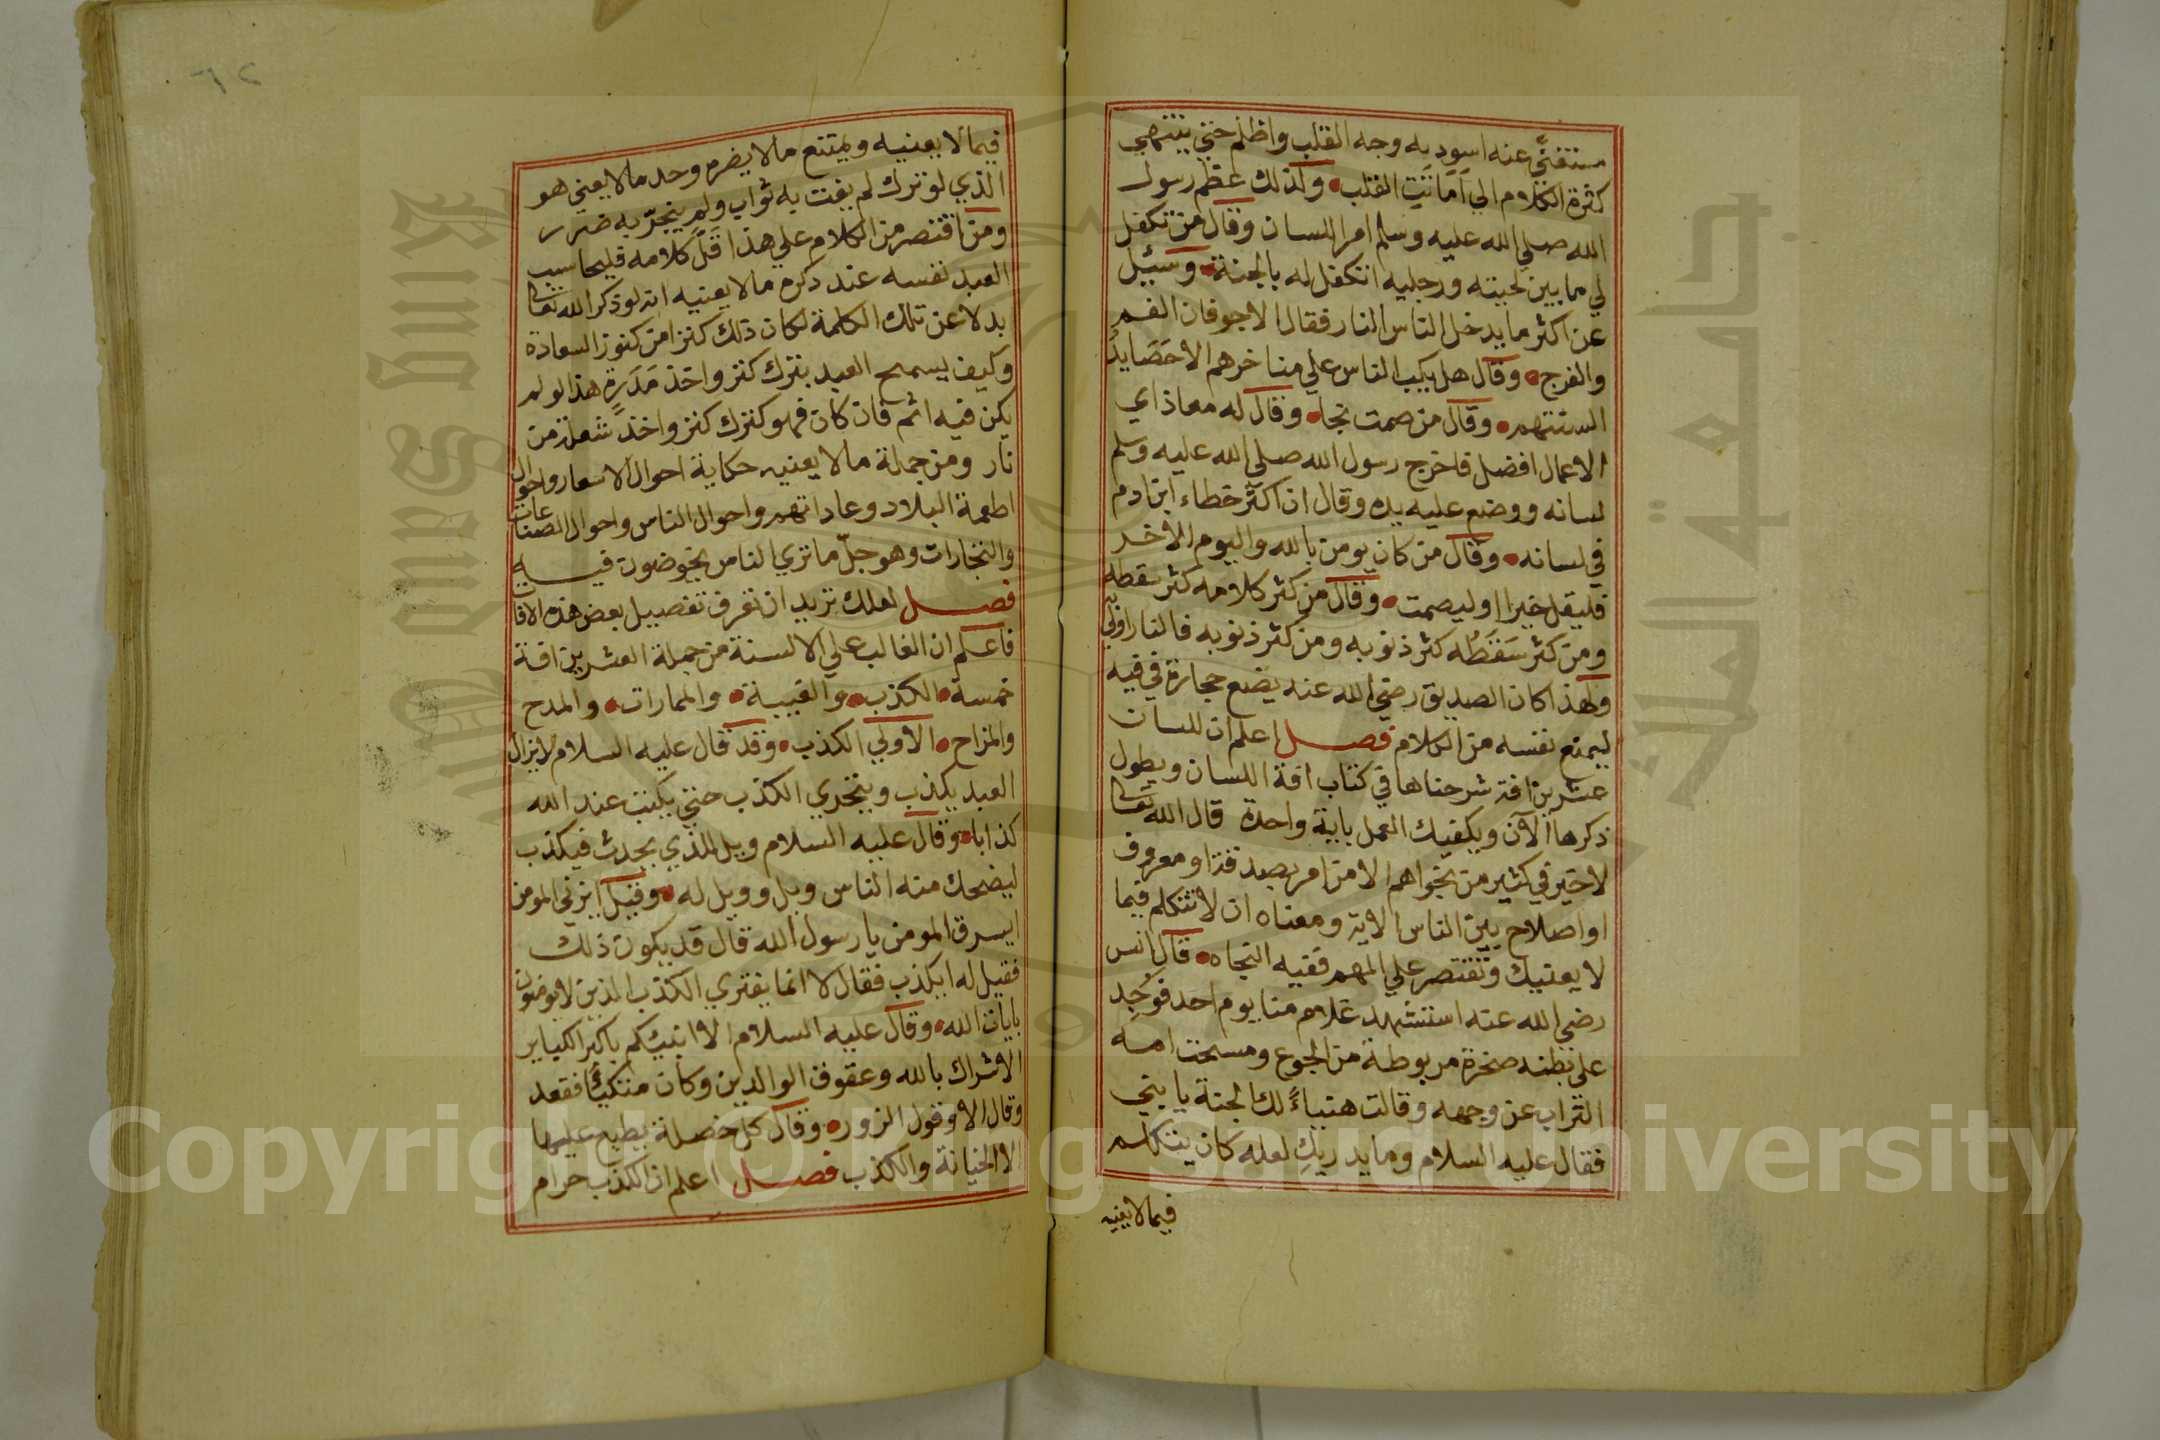 مستغنيً عنه اسود به وجه القلب واظلم حتي ينتهي
كثرة الكلام الي اَمَانَتِ القلب ولذلك عظم رسول
الله صلي الله عليه وسلم امر اللسان وقال من تكفل
لي ما بين لحيته ورجليه اتكفل له بالجنة وسئيل
عن اكثر ما يدخل الناس النار فقال الاجوفان الفم
والفرج وقال هل يكب الناس علي مناخرهم الا حَصَايدُ
السنتهم وقال من صمت نجا وقال له معاذ اي
الاعمال افضل فاخرج رسول الله صلي الله عليه وسلم
لسانه ووضع عليه يده وقال ان اكثر خطاء ابن ادم
في لسانه وقال من كان يومن بالله واليوم الاخر
فليقل خيرا او ليصمت وقال من كثر كلامه كثر سقطه
ومن كثر سَقَطُه كثر ذنوبه ومن كثر ذنوبه فالنار اولي به
ولهذا كان الصديق رضي الله عنه يضع حجارة في فيه
ليمنع نفسه من الكلام فصل اعلم ان للسان
عشرين افة شرحناها في كتاب افة اللسان ويطول
ذكرها الآن ويكفيك العمل باية واحدة قال الله تعالى
لا خير في كثير من نجواهم الا من امر بصدقة او معروف
او اصلاح بين الناس الاية ومعناه ان لا تتكلم فيما
لا يعنيك وتقتصر علي المهم ففيه النجاه قال انس
رضي الله عنه استشهد غلام منا يوم احد فوُجِد
علي بطنه صخرة مربوطة من الجوع ومسحت امه
التراب عن وجهه وقالت هنياءً لك الجنة يا بني
فقال عليه السلام وما يدريكِ لعله كان يتكلم
فيما لا يعنيه
٦٢
فيما لا يعنيه ويمتنع ما لا يضره وحد ما لا يعني هو
الذي لو ترك لم يفت به ثواب ولم ينجرّ به ضرر
ومن اقتصر من الكلام علي هذا قَلَّ كلامه فليحاسب
العبد نفسه عند ذكره ما لا يعنيه انه لو ذكر الله تعالى
بدلا عن تلك الكلمة لكان ذلك كنزا من كنوز السعادة
وكيف يسمح العبد بترك كنز واخذ مَدَرةٍ هذا لو لم
يكن فيه اثم فان كان فهو كترك كنز واخذ شعلة من
نار ومن جملة ما لا يعنيه حكاية احوال الاسعار واحوال
اطعمة البلاد وعاداتهم واحوال الناس واحوال الصناعات
والتجارات وهو جلّ ما تري الناس يخوضون فيه
فصل لعلك تريد ان تعرف تفصيل بعض هذه الافات
فاعلم ان الغالب علي الالسنة من جملة العشرين افة
خمسة الكذب والغيبة والممارات والمدح
والمزاح الاولي الكذب وقد قال عليه السلام لا يزال
العبد يكذب ويتحري الكذب حتي يكتب عند الله
كذابا وقال عليه السلام ويل للذي يحدث فيكذب
ليضحك منه الناس ويل وويل له وقيل ايزني المومن
ايسرق المومن يا رسول الله قال قد يكون ذلك
فقيل له ايكذب فقال لا انما يفتري الكذب الذين لا يومنون
بايات الله وقال عليه السلام الا انبيكم باكبر الكباير
الاشراك بالله وعقوق الوالدين وكان متكيًا فقعد
وقال الا وقول الزور وقال كل خصلة يطبع عليها
لا الخيانة والكذب فصل اعلم ان الكذب حرام
جامعة الملك
King Saud
Copyright © King Saud University